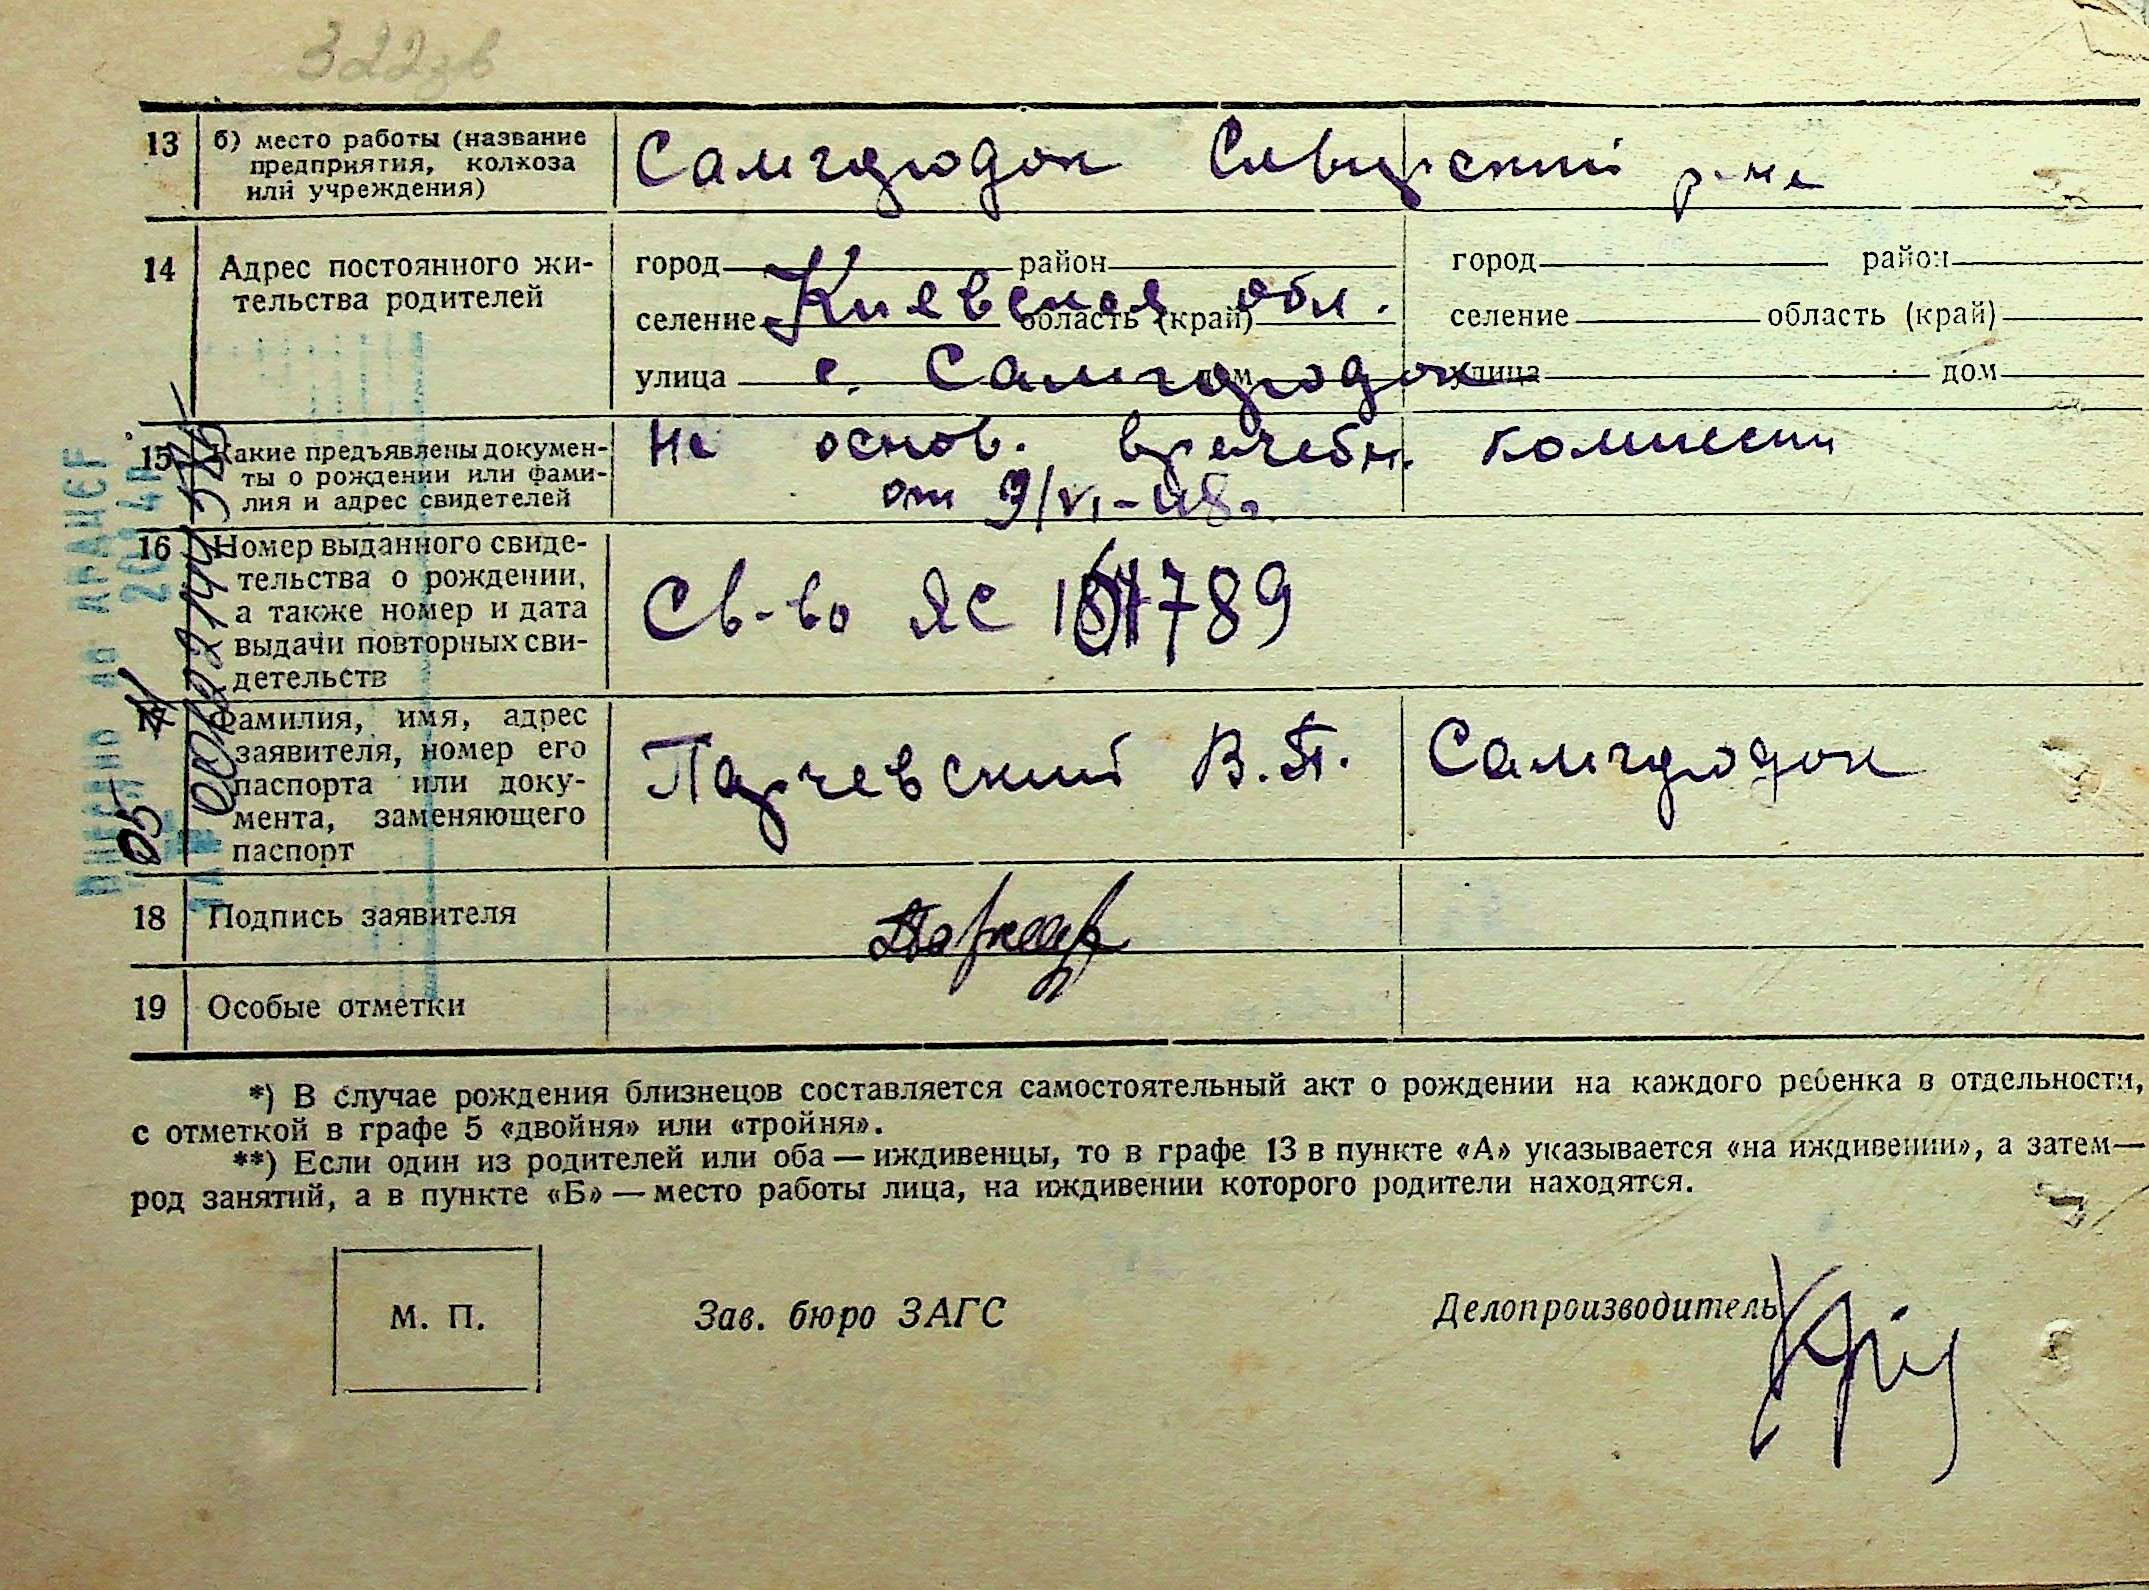 322зв
13 б) место работы (название предприятия, колхоза или учреждения)
Самгородок Сквирский р-на
14 Адрес постоянного жи-
тельства родителей
город район город район
Киевская обл.
селение область (край) селение область (край)
улица дом улица дом
с. Самгородок
15 Какие предъявлены докумен-
ты о рождении или фами-
лия и адрес свидетелей
на основ. врачебн. комиссии
от 9/VI-48г.
16 Номер выданного свиде-
тельства о рождении,
а также номер и дата
выдачи повторных сви-
детельств
Св-во ЯС 789
17 Фамилия, имя, адрес
заявителя, номер его
паспорта или доку-
мента, заменяющего
паспорт
Парчевский В.П. Самгородок
18 Подпись заявителя
19 Особые отметки
*) В случае рождения близнецов составляется самостоятельный акт о рождении на каждого ребенка в отдельности,
с отметкой в графе 5 «двойня» или «тройня».
**) Если один из родителей или оба — иждивенцы, то в графе 13 в пункте «А» указывается «на иждивении», а затем—
род занятий, а в пункте «Б» — место работы лица, на иждивении которого родители находятся.
М. П. Зав. бюро ЗАГС Делопроизводитель